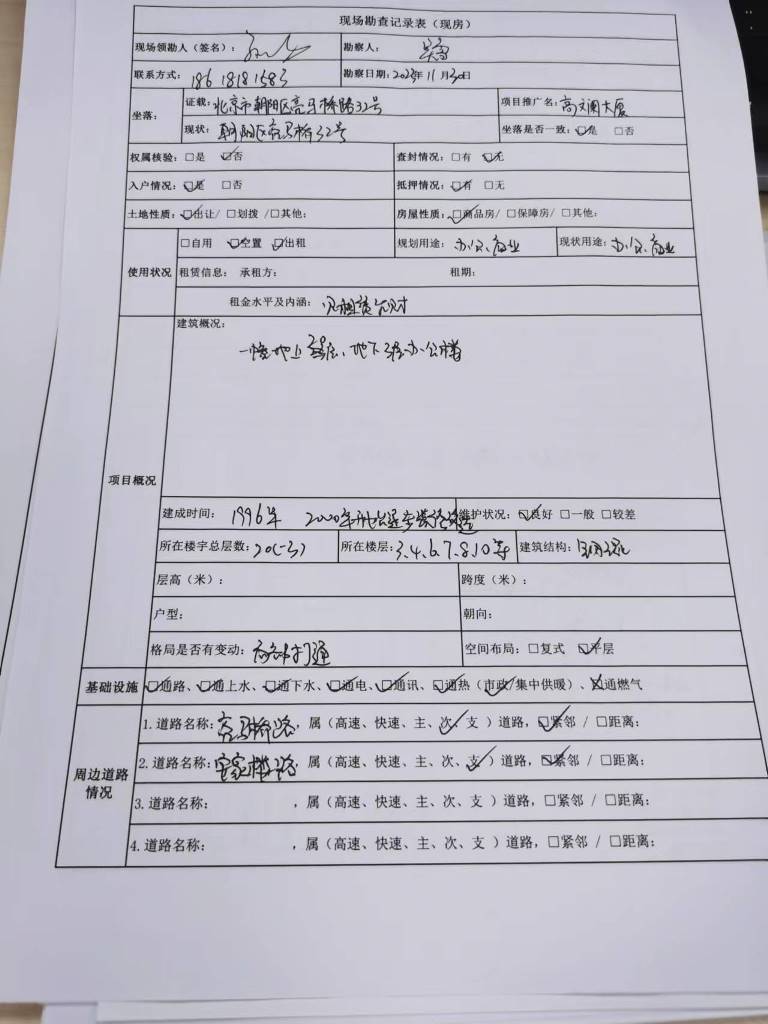 现场勘查记录表（现房）
现场领勘人（签名）： 勘察人：
联系方式： 186 1818 1583 勘察日期：2023年11月30日
坐落： 证载：北京市朝阳区亮马桥路32号 项目推广名：高斓大厦
现状：朝阳区亮马桥32号 坐落是否一致：☑是 □否
权属核验：□是 ☑否 查封情况：□有 ☑无
入户情况：☑是 □否 抵押情况：☑有 □无
土地性质：☑出让/ □划拨 / □其他： 房屋性质：☑商品房/ □保障房/ □其他：
使用状况 □自用 ☑空置 ☑出租 规划用途：办公、商业 现状用途：办公、商业
租赁信息： 承租方： 租期：
租金水平及内涵：见租赁台账
项目概况 建筑概况：
一幢地上20层、地下3层办公楼
建成时间： 1996年 2000年 维护状况：☑良好 □一般 □较差
所在楼宇总层数：20(-3) 所在楼层：3.4.6.7.8.10等 建筑结构：钢混
层高（米）： 跨度（米）：
户型： 朝向：
格局是否有变动：局部打通 空间布局：□复式 ☑平层
基础设施 ☑通路、☑通上水、☑通下水、☑通电、☑通讯、☑通热（市政/集中供暖）、☒通燃气
周边道路情况 1.道路名称：亮马桥路，属（高速、快速、主、次、支 ）道路，☑紧邻 / □距离：
2.道路名称：路，属（高速、快速、主、次、支 ）道路，☑紧邻 / □距离：
3.道路名称： ，属（高速、快速、主、次、支 ）道路，□紧邻 / □距离：
4.道路名称： ，属（高速、快速、主、次、支 ）道路，□紧邻 / □距离：